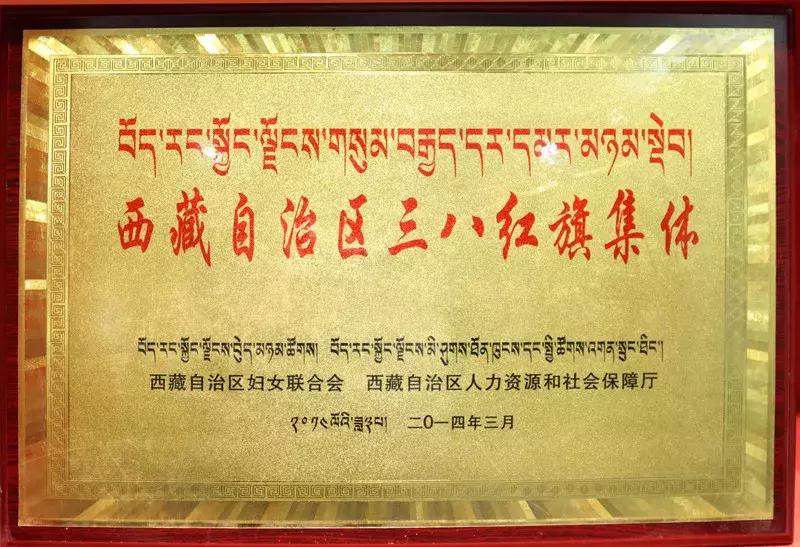 བོད་རང་སྐྱོང་ལྗོངས་གསུམ་བརྒྱད་དར་དམར་མཉམ་སྡེབ།
西藏自治区三八红旗集体
བོད་རང་སྐྱོང་ལྗོངས་བུད་མཉམ་ཚོགས། བོད་རང་སྐྱོང་ལྗོངས་མི་ཤུགས་ཐོན་ཁུངས་དང་སྤྱི་ཚོགས་འགན་སྲུང་ཐིང་།
西藏自治区妇女联合会 西藏自治区人力资源和社会保障厅
༢༠༡༤ལོའི་ཟླ༣པ། 二〇一四年三月